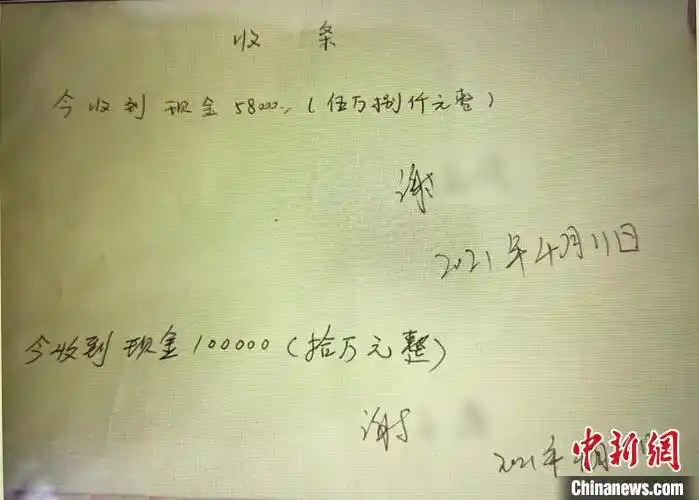 收 条
今收到现金58000.(伍万捌仟元整)
谢
2021年4月11日
今收到现金100000(拾万元整)
谢
2021年
中新網
Chinanews.com